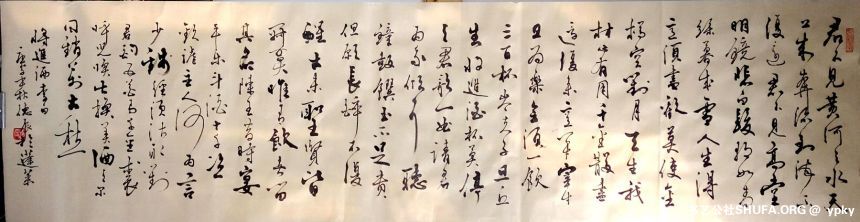 君不見黃河之水天
上來奔流到海不
復迴君不見高堂
明鏡悲白髮朝如青
絲暮成雪人生得
意須盡歡莫使金
樽空對月天生我
材必有用千金散盡
還復來烹羊宰牛
且為樂會須一飲
三百杯岑夫子丹丘
生將進酒杯莫停
與君歌一曲請君
為我傾耳聽
鐘鼓饌玉不足貴
但願長醉不復
醒古來聖賢皆
寂寞唯有飲者留
其名陳王昔時宴
平樂斗酒十千恣
歡謔主人何為言
少錢徑須沽取對
君酌五花馬千金裘
呼兒喚出換美酒與爾
同銷萬古愁
將進酒李白
年秋於蓬萊
公社SHUFA.ORG @ ypky